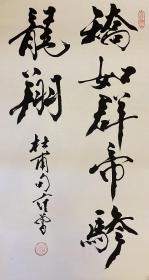 矯如群帝驂
龍翔
杜甫句范曾